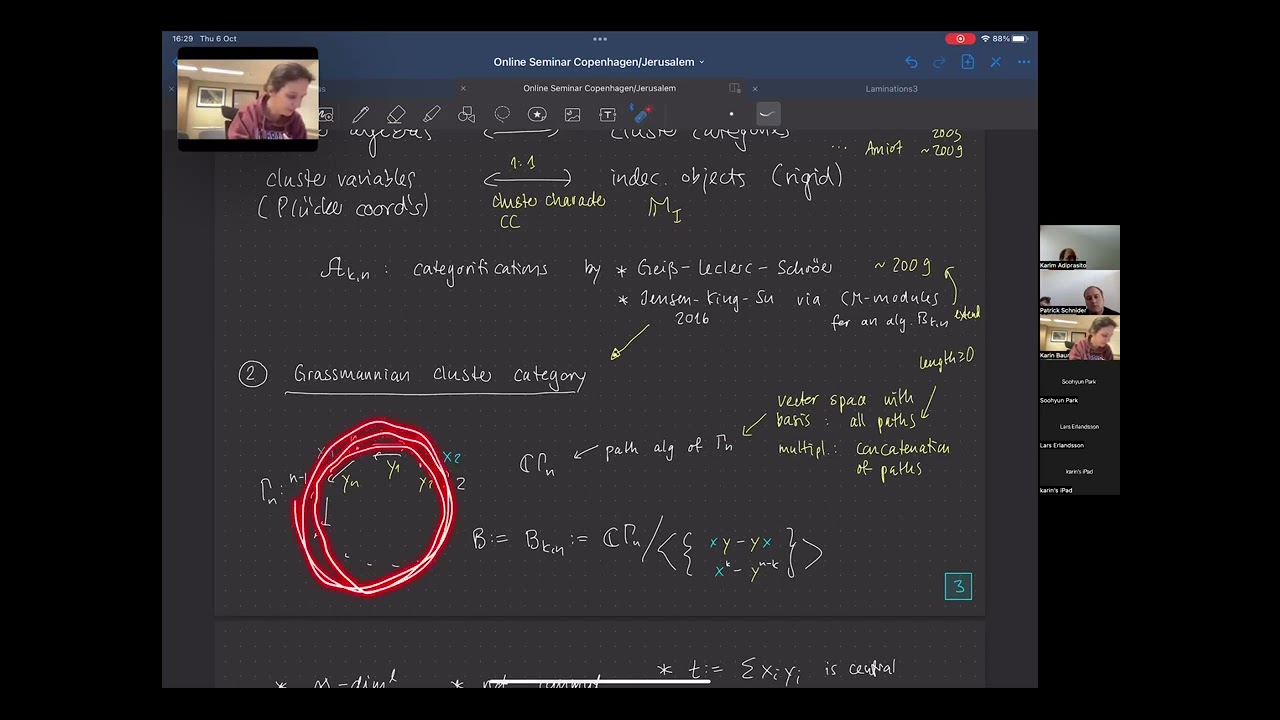 16:29 Thu 6 Oct
88%
Online Seminar Copenhagen/Jerusalem
Online Seminar Copenhagen/Jerusalem
Laminations3
algebras ⟷ cluster categories
2005
... Amiot ~2009
cluster variables ⟷ 1:1 indec. objects (rigid)
(Plücker coords) cluster character M_I
CC
A_{k,n}: categorifications by * Geiß-Leclerc-Schröer ~2009
* Jensen-King-Su via CM-modules
2016 for an alg. B_{k,n} extend
② Grassmannian cluster category
length ≥ 0
vector space with
basis: all paths
ℂΓ_n ← path alg of Γ_n
multipl.: concatenation
of paths
Γ_n: n-1 x_1 y_n y_1 y_2 x_2 2
B := B_{k,n} := ℂΓ_n / <{ xy - yx
x^k - y^{n-k} }>
3
* t := Σ x_i y_i is central
Karim Adiprasito
Patrick Schnider
Karin Baur
Soohyun Park
Soohyun Park
Lars Erlandsson
Lars Erlandsson
karin's iPad
karin's iPad